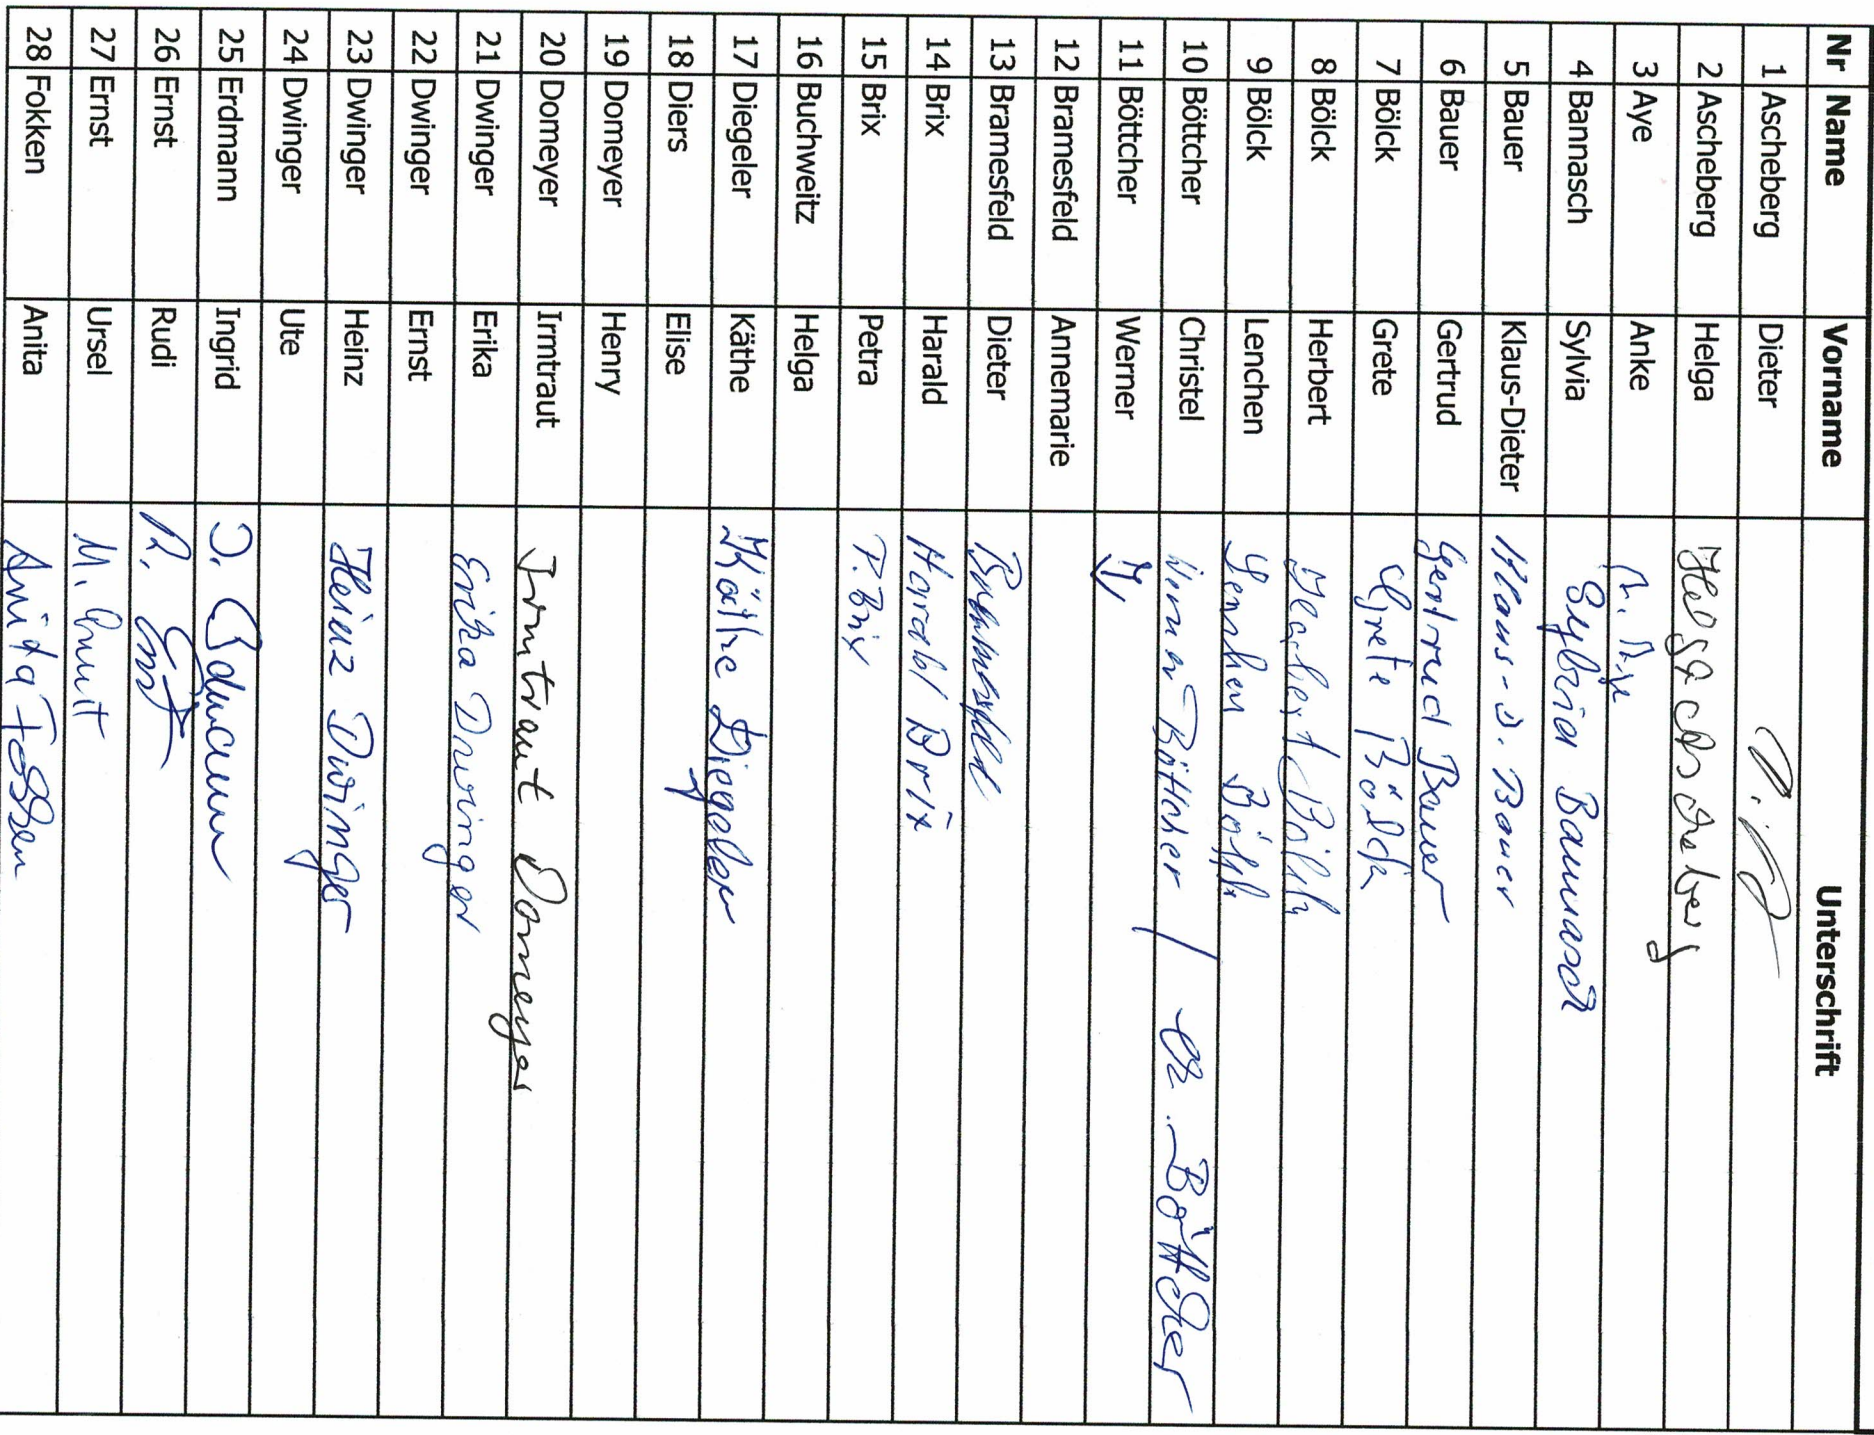 Nr Name Vorname Unterschrift
1 Ascheberg Dieter
2 Ascheberg Helga Helga Ascheberg
3 Aye Anke A. Aye
4 Bannasch Sylvia Sylvia Bannasch
5 Bauer Klaus-Dieter Klaus-D. Bauer
6 Bauer Gertrud Gertrud Bauer
7 Bölck Grete Grete Bölck
8 Bölck Herbert Herbert Bölck
9 Bölck Lenchen Lenchen Bölck
10 Böttcher Christel Werner Böttcher / Ch. Böttcher
11 Böttcher Werner
12 Bramesfeld Annemarie
13 Bramesfeld Dieter Bramesfeld
14 Brix Harald Harald Brix
15 Brix Petra P. Brix
16 Buchweitz Helga
17 Diegeler Käthe Käthe Diegeler
18 Diers Elise
19 Domeyer Henry
20 Domeyer Irmtraut Irmtraut Domeyer
21 Dwinger Erika Erika Dwinger
22 Dwinger Ernst
23 Dwinger Heinz Heinz Dwinger
24 Dwinger Ute
25 Erdmann Ingrid I. Erdmann
26 Ernst Rudi R. Ernst
27 Ernst Ursel
28 Fokken Anita Anita Fokken